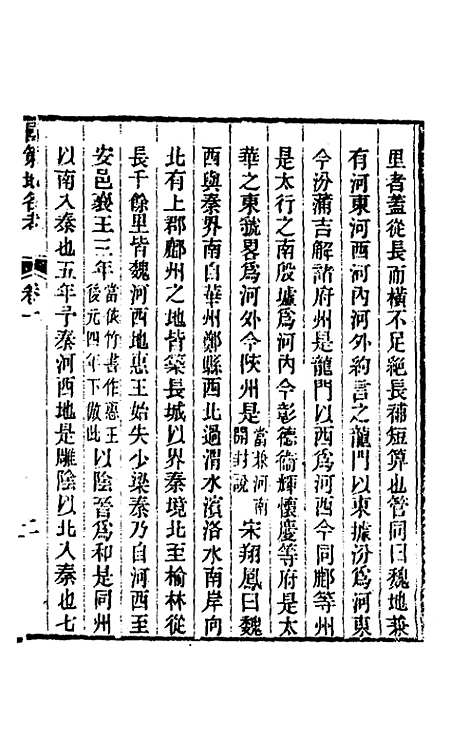 里者蓋從長而橫不足絕長補短算也管同曰魏地兼
有河東河西河內河外約言之龍門以東據汾爲河東
今汾蒲吉解諸府州是龍門以西爲河西今同鄜等州
是太行之南殷墟爲河內今彰德衞輝懷慶等府是太
華之東虢畧爲河外今陜州是當兼河南開封說宋翔鳳曰魏
西與秦界南自華州鄭縣西北過渭水濱洛水南岸向
北有上郡鄜州之地皆築長城以界秦境北至榆林從
長千餘里皆魏河西地惠王始失少梁秦乃自河西至
安邑襄王三年當依竹書作惠王後元四年下倣此以陰晉爲和是同州
以南入秦也五年予秦河西地是雕陰以北入秦也七
地名考 卷一 二